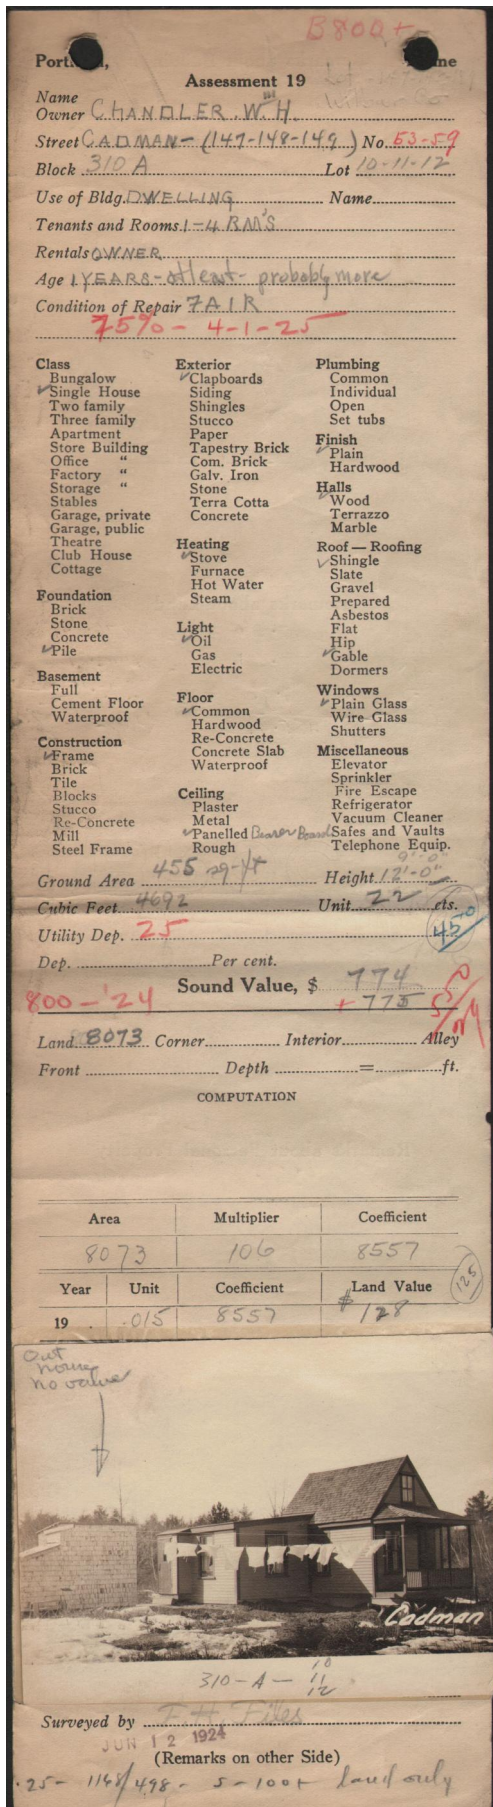 B800+
Portland, Maine
Assessment 19
Name
Owner CHANDLER. W. H.
Street CADMAN-(147-148-149) No. 53-59
Block 310 A Lot 10-11-12
Use of Bldg. DWELLING Name
Tenants and Rooms 1-4 RM'S
Rentals OWNER
Age 1 YEARS - at least - probably more
Condition of Repair FAIR
75% - 4-1-25
Class
Bungalow
✓Single House
Two family
Three family
Apartment
Store Building
Office "
Factory "
Storage "
Stables
Garage, private
Garage, public
Theatre
Club House
Cottage
Foundation
Brick
Stone
Concrete
✓Pile
Basement
Full
Cement Floor
Waterproof
Construction
✓Frame
Brick
Tile
Blocks
Stucco
Re-Concrete
Mill
Steel Frame
Exterior
✓Clapboards
Siding
Shingles
Stucco
Paper
Tapestry Brick
Com. Brick
Galv. Iron
Stone
Terra Cotta
Concrete
Heating
✓Stove
Furnace
Hot Water
Steam
Light
✓Oil
Gas
Electric
Floor
✓Common
Hardwood
Re-Concrete
Concrete Slab
Waterproof
Ceiling
Plaster
Metal
✓Panelled Beaver Board
Rough
Plumbing
Common
Individual
Open
Set tubs
Finish
✓Plain
Hardwood
Halls
✓Wood
Terrazzo
Marble
Roof — Roofing
✓Shingle
Slate
Gravel
Prepared
Asbestos
Flat
Hip
✓Gable
Dormers
Windows
✓Plain Glass
Wire Glass
Shutters
Miscellaneous
Elevator
Sprinkler
Fire Escape
Refrigerator
Vacuum Cleaner
Safes and Vaults
Telephone Equip.
9'-0"
Ground Area 455 sq-ft Height 12'-0"
Cubic Feet 4692 Unit 22 cts.
Utility Dep. 25
450
Dep. Per cent.
Sound Value, $ 774
800-'24 + 775
Land 8073 Corner Interior Alley
Front Depth = ft.
COMPUTATION
Area Multiplier Coefficient
8073 106 8557
Year Unit Coefficient Land Value
125
19 . .015 8557 $128
Out
house
no value
Cadman
310-A- 10
11
12
Surveyed by F. H. Files
JUN 12 1924
(Remarks on other Side)
.25- 1168/498- S-100+ land only